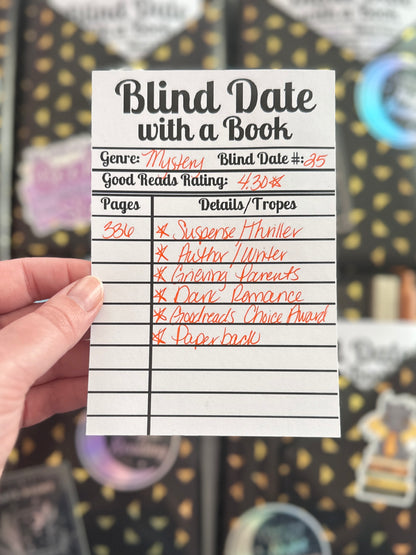 Blind Date
with a Book
Genre: Mystery Blind Date #: 25
Good Reads Rating: 4.30★
Pages Details/Tropes
336 ★ Suspense/Thriller
★ Author/Writer
★ Grieving Parents
★ Dark Romance
★ Goodreads Choice Award
★ Paperback